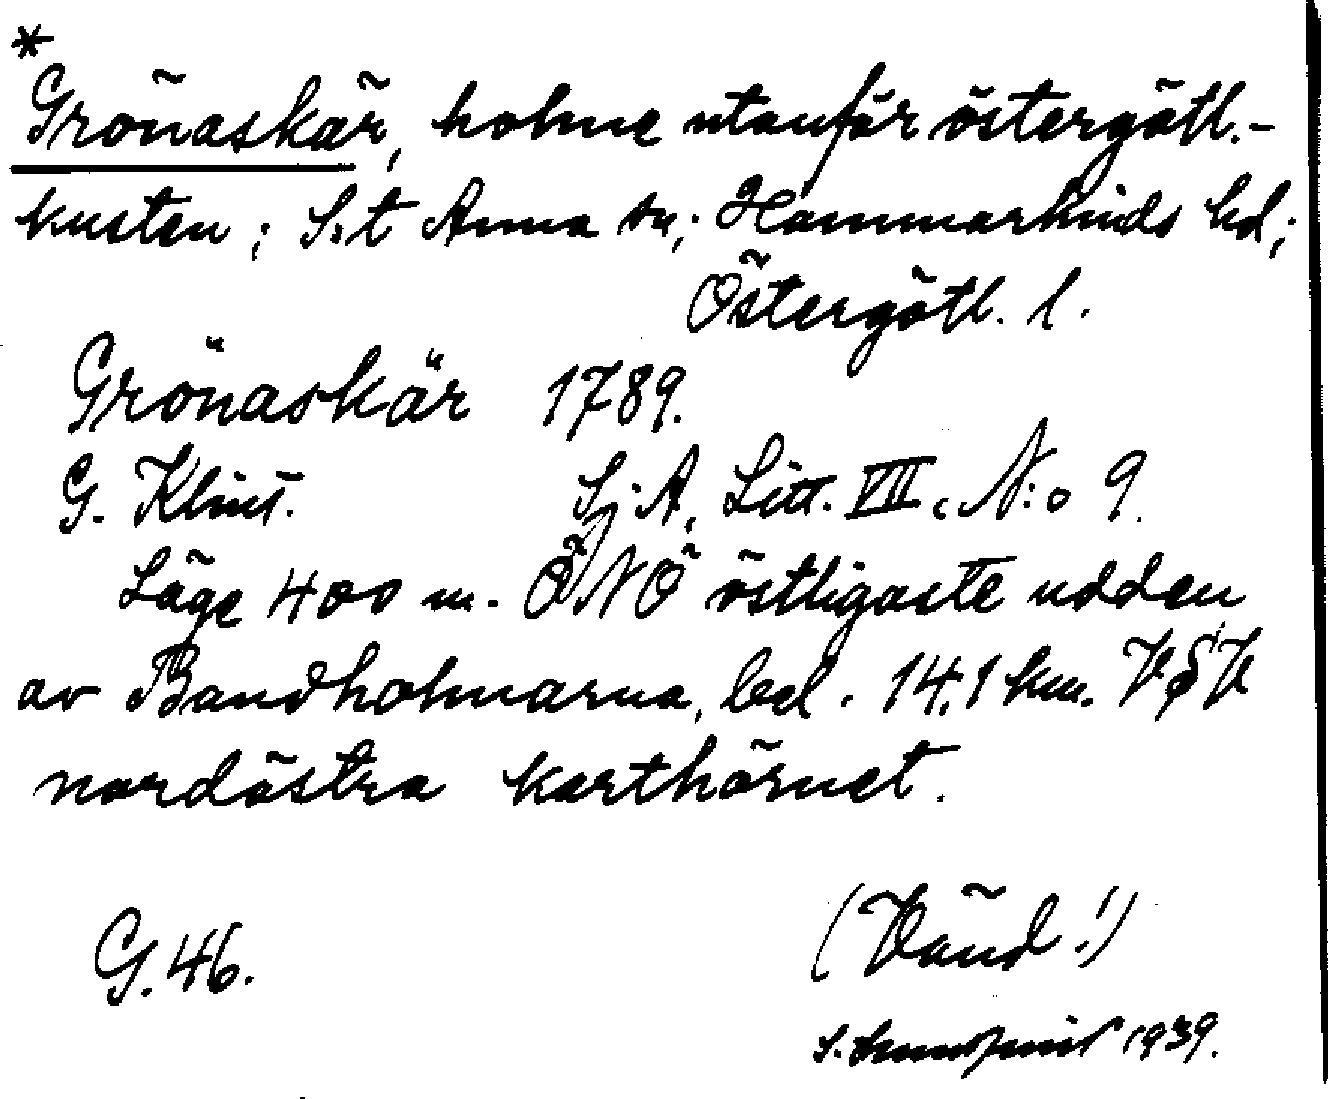 *
Grönaskär, holme utanför östergötl.-
kusten; S:t Anna sn; Hammarkinds hd;
Östergötl. l.
Grönaskär 1789.
G. Klint. Sj.A. Litt. VIII. N:o 9.
Läge 400 m. ÖNÖ östligaste udden
av Bandholmarna, bel. 14,1 km. VSV
nordöstra karthörnet.
G.46. (Vänd!)
S. 1939.